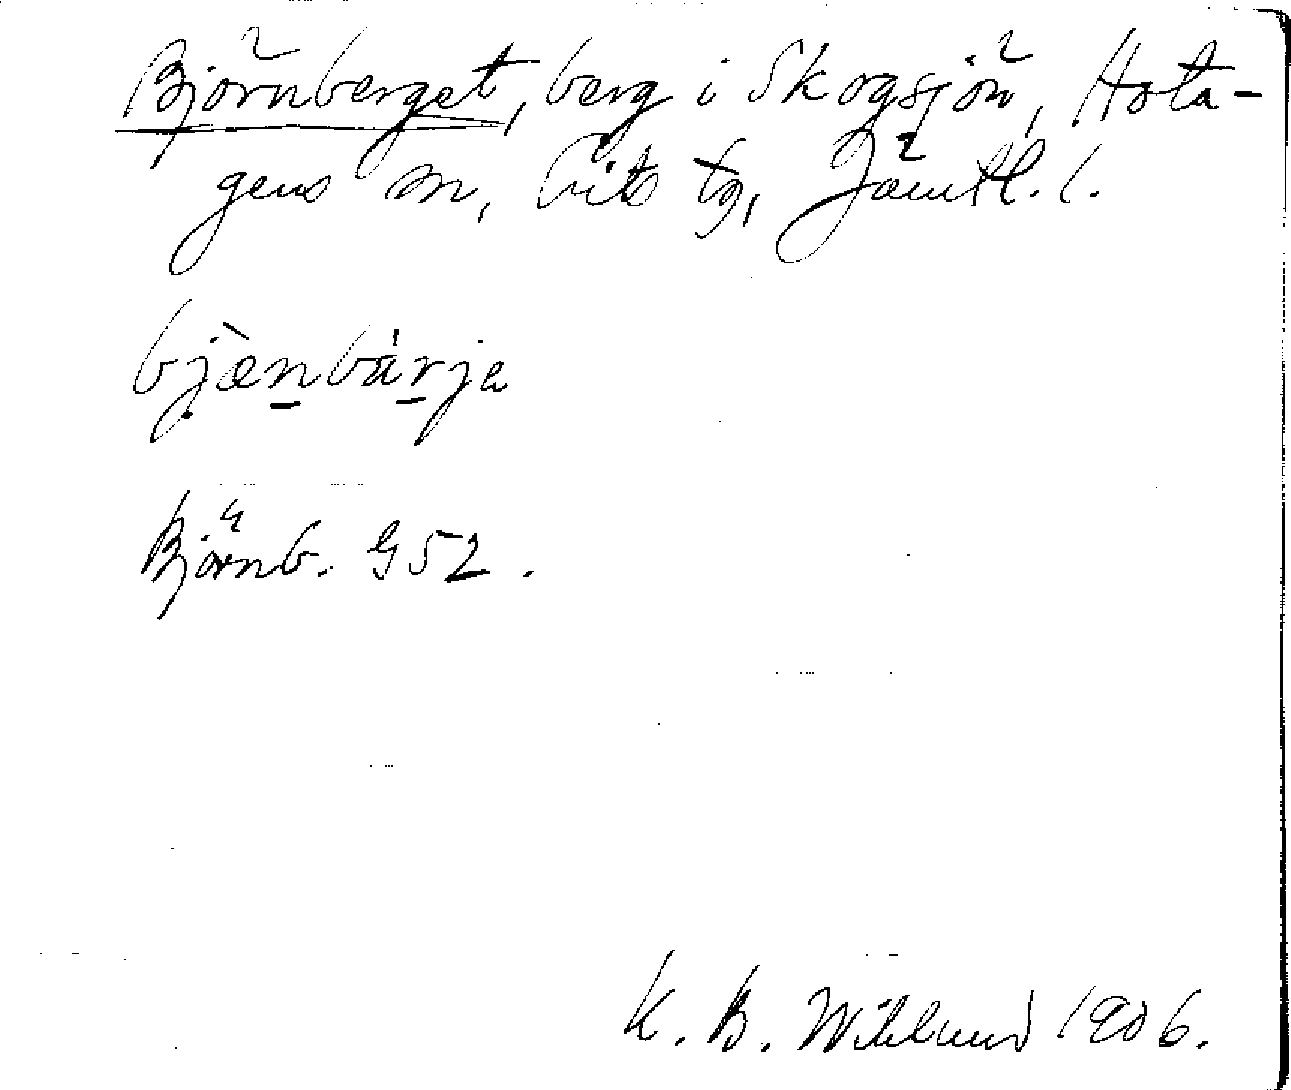 Björnberget, berg i Skogsjön, Hota-
gens sn, Lits tg, Jämtl. l.
bjænbárja
Björnb. G52.
K. B. Wiklund 1906.